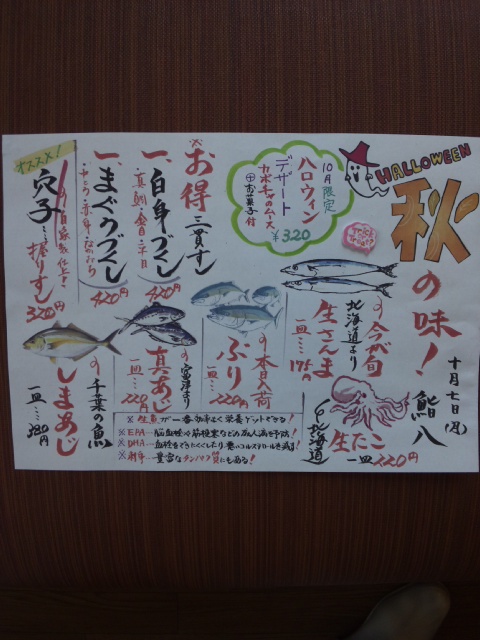 HALLOWEEN
秋の味!
十月七日(月)
鮨八
10月限定
ハロウィン
デザート
カボチャのムース
お菓子付
¥320
今が旬
北海道より
生さんま
一皿…175円
北海道
生たこ
一皿220円
お得三貫すし
一、白身づくし
・真鯛・金目・平目
420円
一、まぐろづくし
420円
オススメ!
自家製仕上!
穴子…握りすし
320円
本日入荷
ぶり
一皿…220円
富津より
真あじ
一皿…220円
千葉の魚
しまあじ
一皿…380円
※生魚が一番効率よく栄養ゲットできる!
※EPA…脳血栓や筋梗塞などの成人病を予防!
※DHA…血栓をできにくくしたり悪いコレステロールを減す!
豊富なタンパク質にもある!